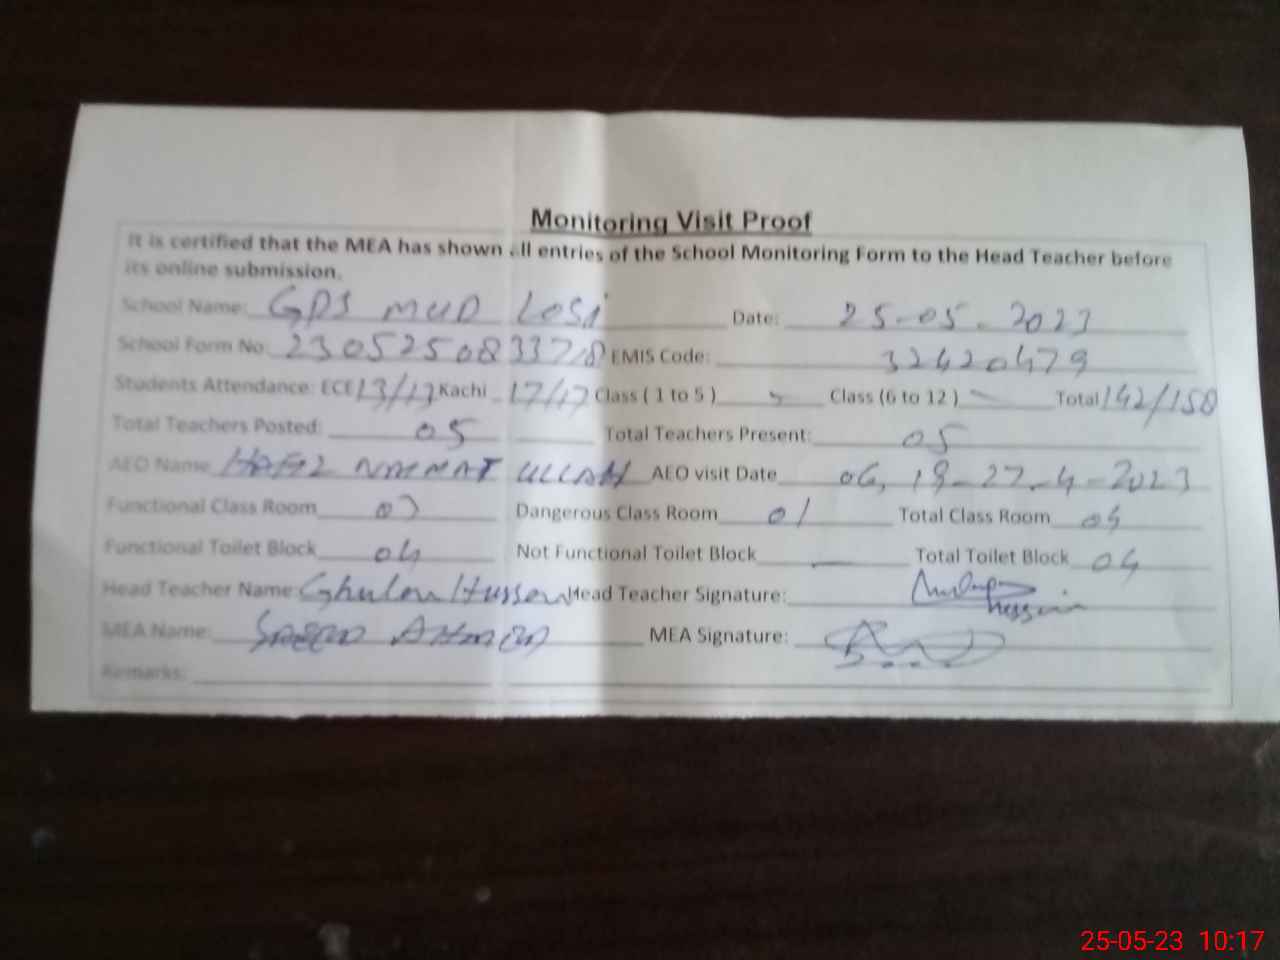 Monitoring Visit Proof
It is certified that the MEA has shown all entries of the School Monitoring Form to the Head Teacher before
its online submission.
School Name: GPS MUD LOSI Date: 25-05-2023
School Form No: 230525083378 EMIS Code: 32420479
Students Attendance: ECE 13/17 Kachi 17/17 Class ( 1 to 5 ) Class (6 to 12 ) Total 142/158
Total Teachers Posted: 05 Total Teachers Present: 05
AEO Name HAFIZ NAEMAT ULLAH AEO visit Date 06, 19-27-4-2023
Functional Class Room 03 Dangerous Class Room 01 Total Class Room 04
Functional Toilet Block 04 Not Functional Toilet Block Total Toilet Block 04
Head Teacher Name: Ghulam Hussain Head Teacher Signature: Hussain
MEA Name: Saeed Ahmad MEA Signature:
Remarks:
25-05-23 10:17